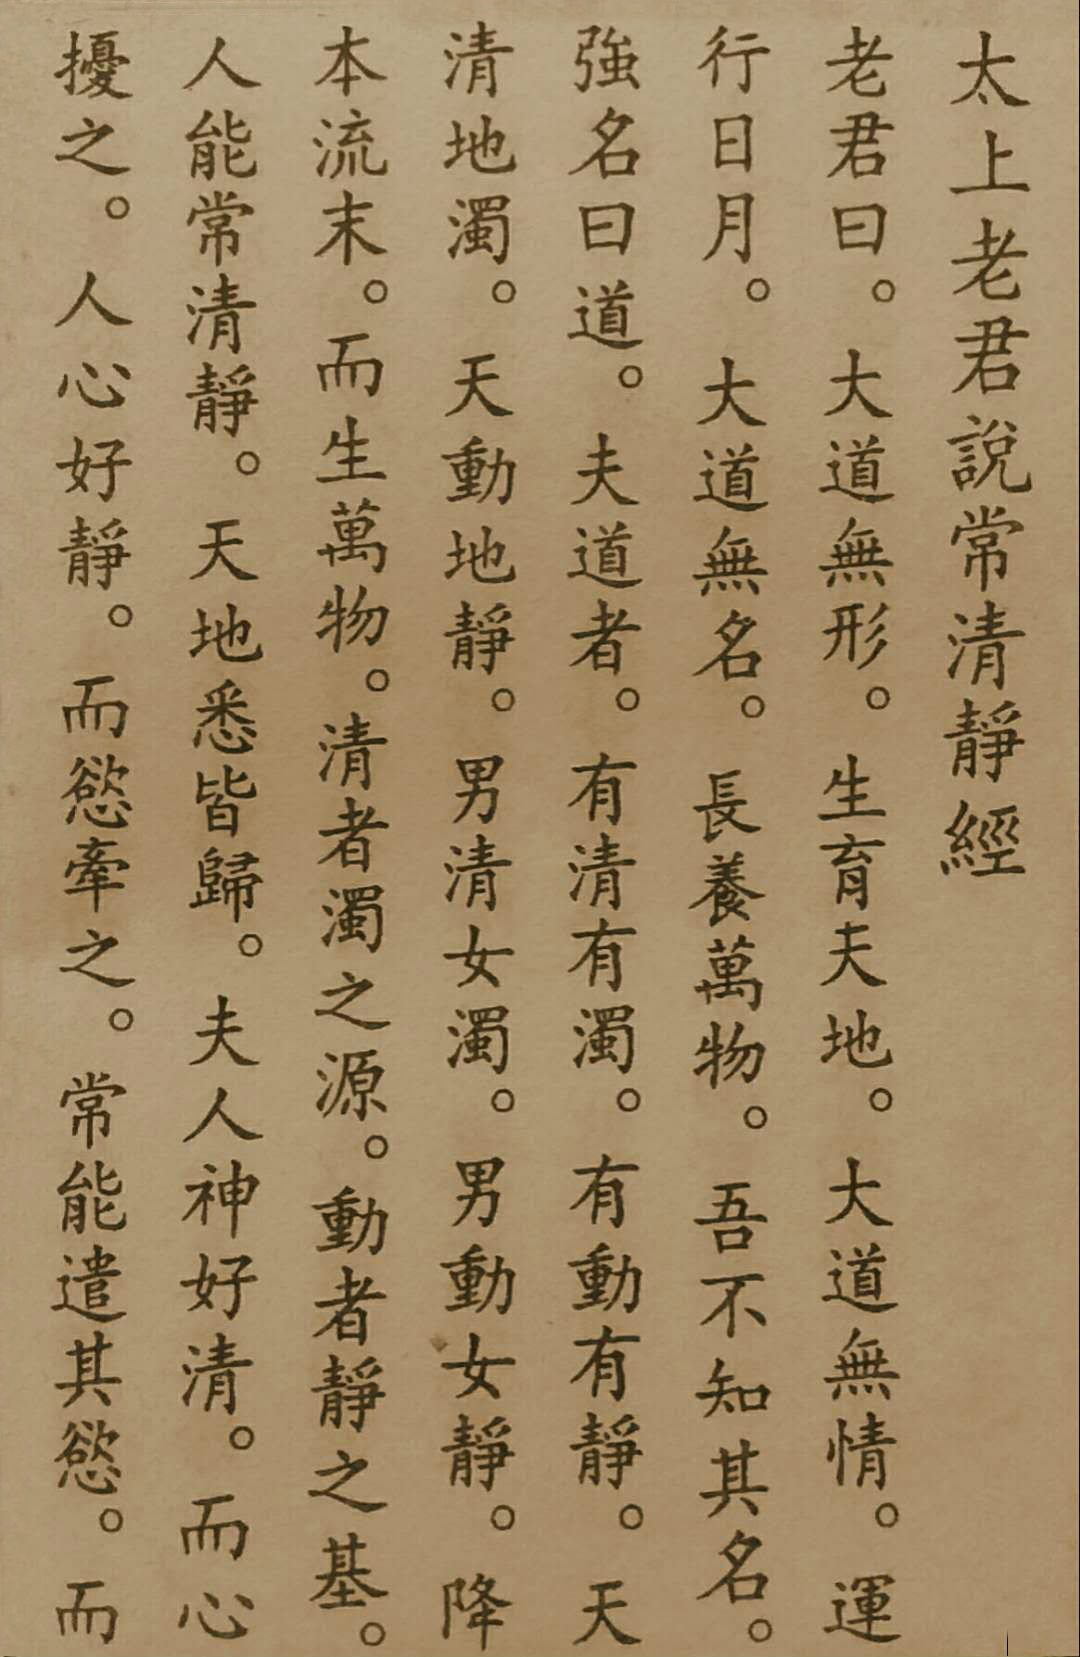 太上老君說常清靜經
老君曰。大道無形。生育夫地。大道無情。運
行日月。大道無名。長養萬物。吾不知其名。
強名曰道。夫道者。有清有濁。有動有靜。天
清地濁。天動地靜。男清女濁。男動女靜。降
本流末。而生萬物。清者濁之源。動者靜之基。
人能常清靜。天地悉皆歸。夫人神好清。而心
擾之。人心好靜。而慾牽之。常能遣其慾。而